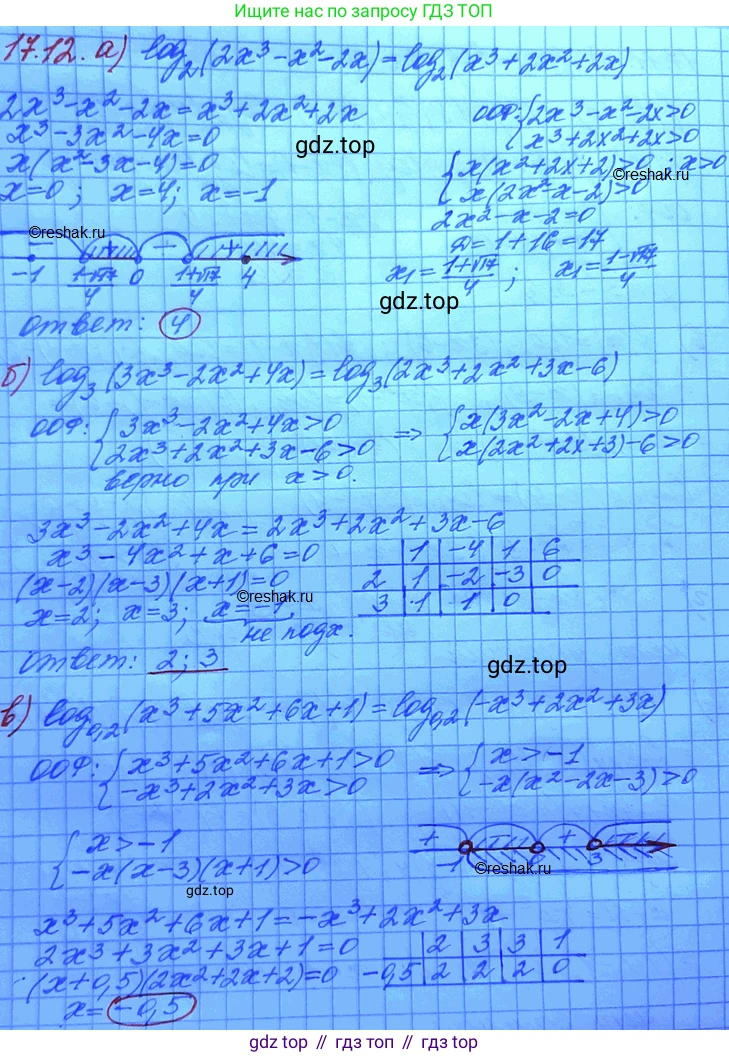 Ищите нас по запросу ГДЗ ТОП
17.12. а) log₂(2x³-x²-2x)=log₂(x³+2x²+2x)
2x³-x²-2x=x³+2x²+2x
x³-3x²-4x=0
x(x²-3x-4)=0
x=0; x=4; x=-1
ООФ: {2x³-x²-2x>0
x³+2x²+2x>0
{x(x²+2x+2)>0; x>0
x(2x²-x-2)>0
2x²-x-2=0
Д=1+16=17
x₁=(1+√17)/4; x₁=(1-√17)/4
gdz.top
©reshak.ru
©reshak.ru
- + - +
-1 (1-√17)/4 0 (1+√17)/4 4
gdz.top
ответ: 4
б) log₃(3x³-2x²+4x)=log₃(2x³+2x²+3x-6)
ООФ: {3x³-2x²+4x>0
2x³+2x²+3x-6>0
⇒ {x(3x²-2x+4)>0
x(2x²+2x+3)-6>0
верно при x>0.
3x³-2x²+4x=2x³+2x²+3x-6
x³-4x²+x+6=0
(x-2)(x-3)(x+1)=0
x=2; x=3; x=-1
не подх.
1 -4 1 6
2 1 -2 -3 0
3 1 1 0
©reshak.ru
ответ: 2; 3
gdz.top
в) log₀,₂(x³+5x²+6x+1)=log₀,₂(-x³+2x²+3x)
ООФ: {x³+5x²+6x+1>0
-x³+2x²+3x>0
⇒ {x>-1
-x(x²-2x-3)>0
{x>-1
-x(x-3)(x+1)>0
+ - + -
-1 3
©reshak.ru
gdz.top
x³+5x²+6x+1=-x³+2x²+3x
2x³+3x²+3x+1=0
(x+0,5)(2x²+2x+2)=0
x=-0,5
2 3 3 1
-0,5 2 2 2 0
gdz.top // гдз топ // gdz.top // гдз топ